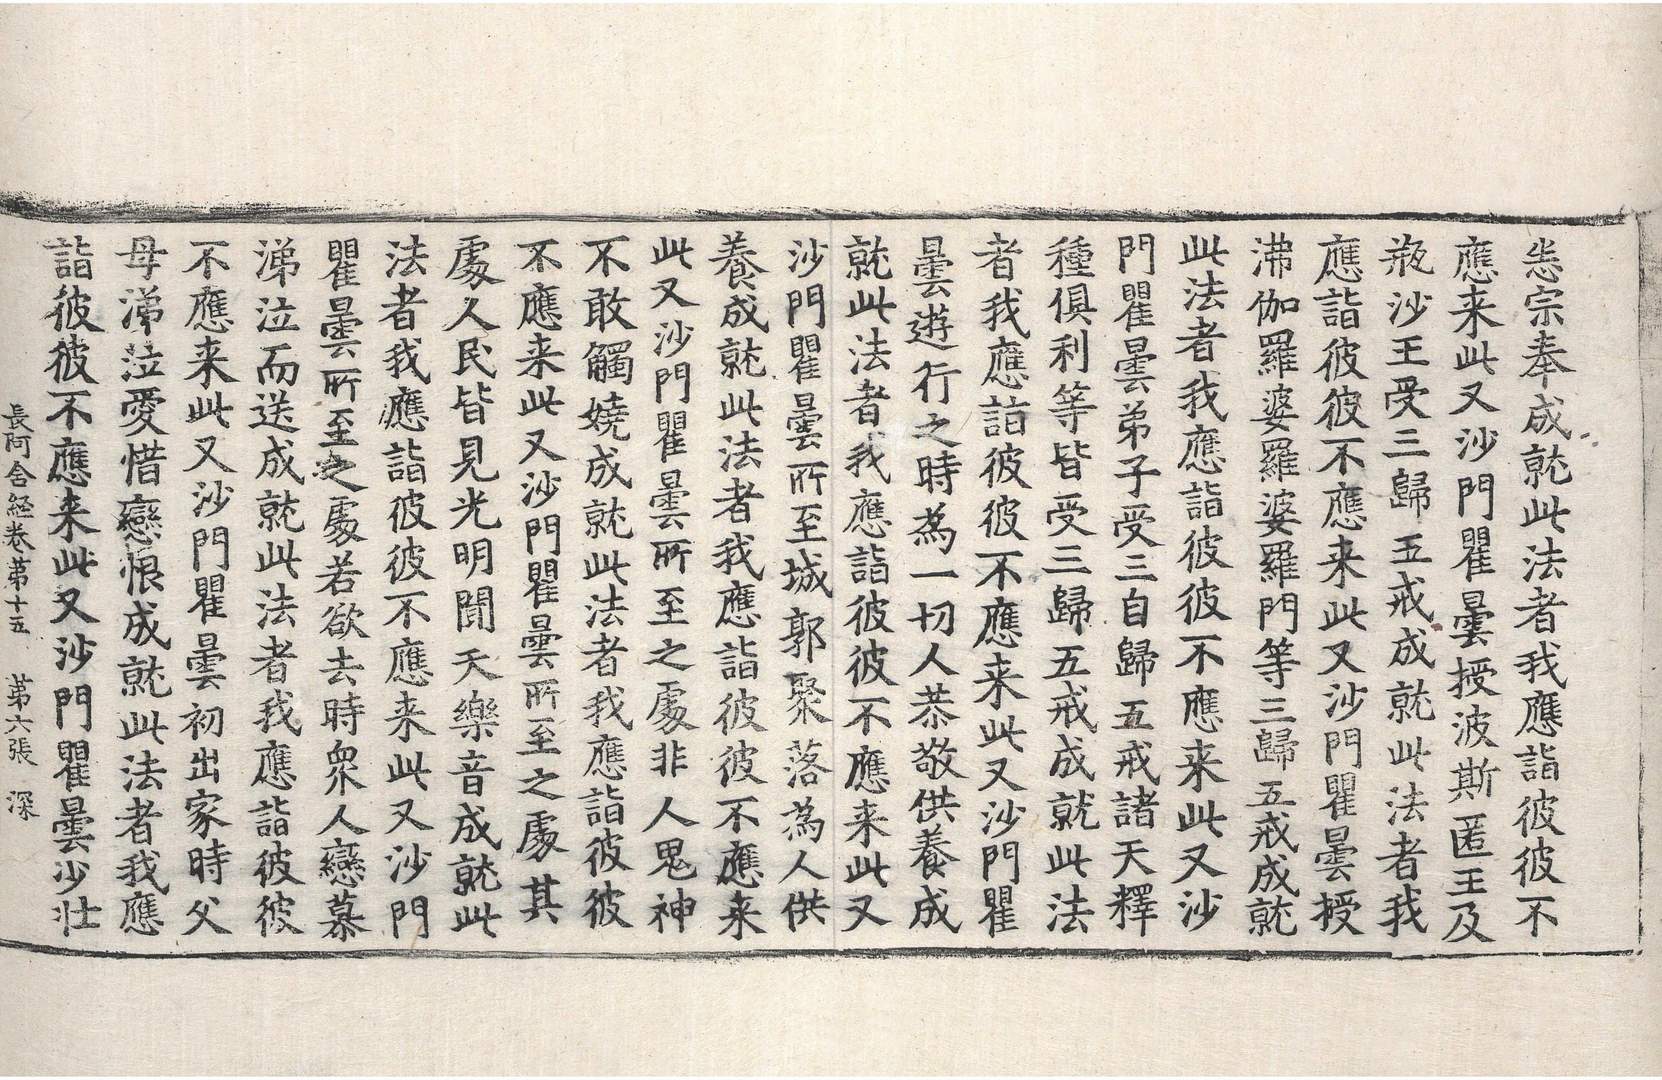 恙宗奉成就此法者我應詣彼彼不
應来此又沙門瞿曇授波斯匿王及
瓶沙王受三歸五戒成就此法者我
應詣彼彼不應来此又沙門瞿曇授
沸伽羅婆羅婆羅門等三歸五戒成就
此法者我應詣彼彼不應来此又沙
門瞿曇弟子受三自歸五戒諸天釋
種俱利等皆受三歸五戒成就此法
者我應詣彼彼不應来此又沙門瞿
曇遊行之時為一切人恭敬供養成
就此法者我應詣彼彼不應来此又
沙門瞿曇所至城郭聚落為人供
養成就此法者我應詣彼彼不應来
此又沙門瞿曇所至之處非人鬼神
不敢觸嬈成就此法者我應詣彼彼
不應来此又沙門瞿曇所至之處其
處人民皆見光明聞天樂音成就此
法者我應詣彼彼不應来此又沙門
瞿曇所至之處若欲去時衆人戀慕
涕泣而送成就此法者我應詣彼彼
不應来此又沙門瞿曇初出家時父
母涕泣愛惜戀恨成就此法者我應
詣彼彼不應来此又沙門瞿曇少壯
長阿含経卷第十五 第六張 深